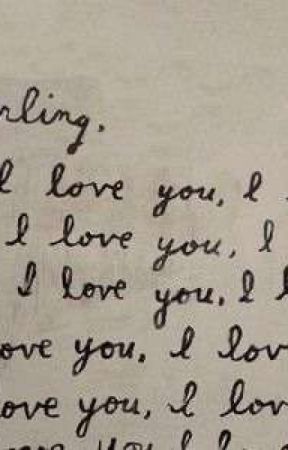 rling.
I love you, I
I love you, I
I love you, I
ove you, I lov
love you, I lov
you I